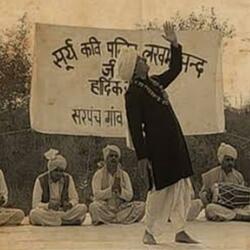 सूर्य कवि पण्डित लखमीचन्द
जी
हार्दिक
सरपंच गांव